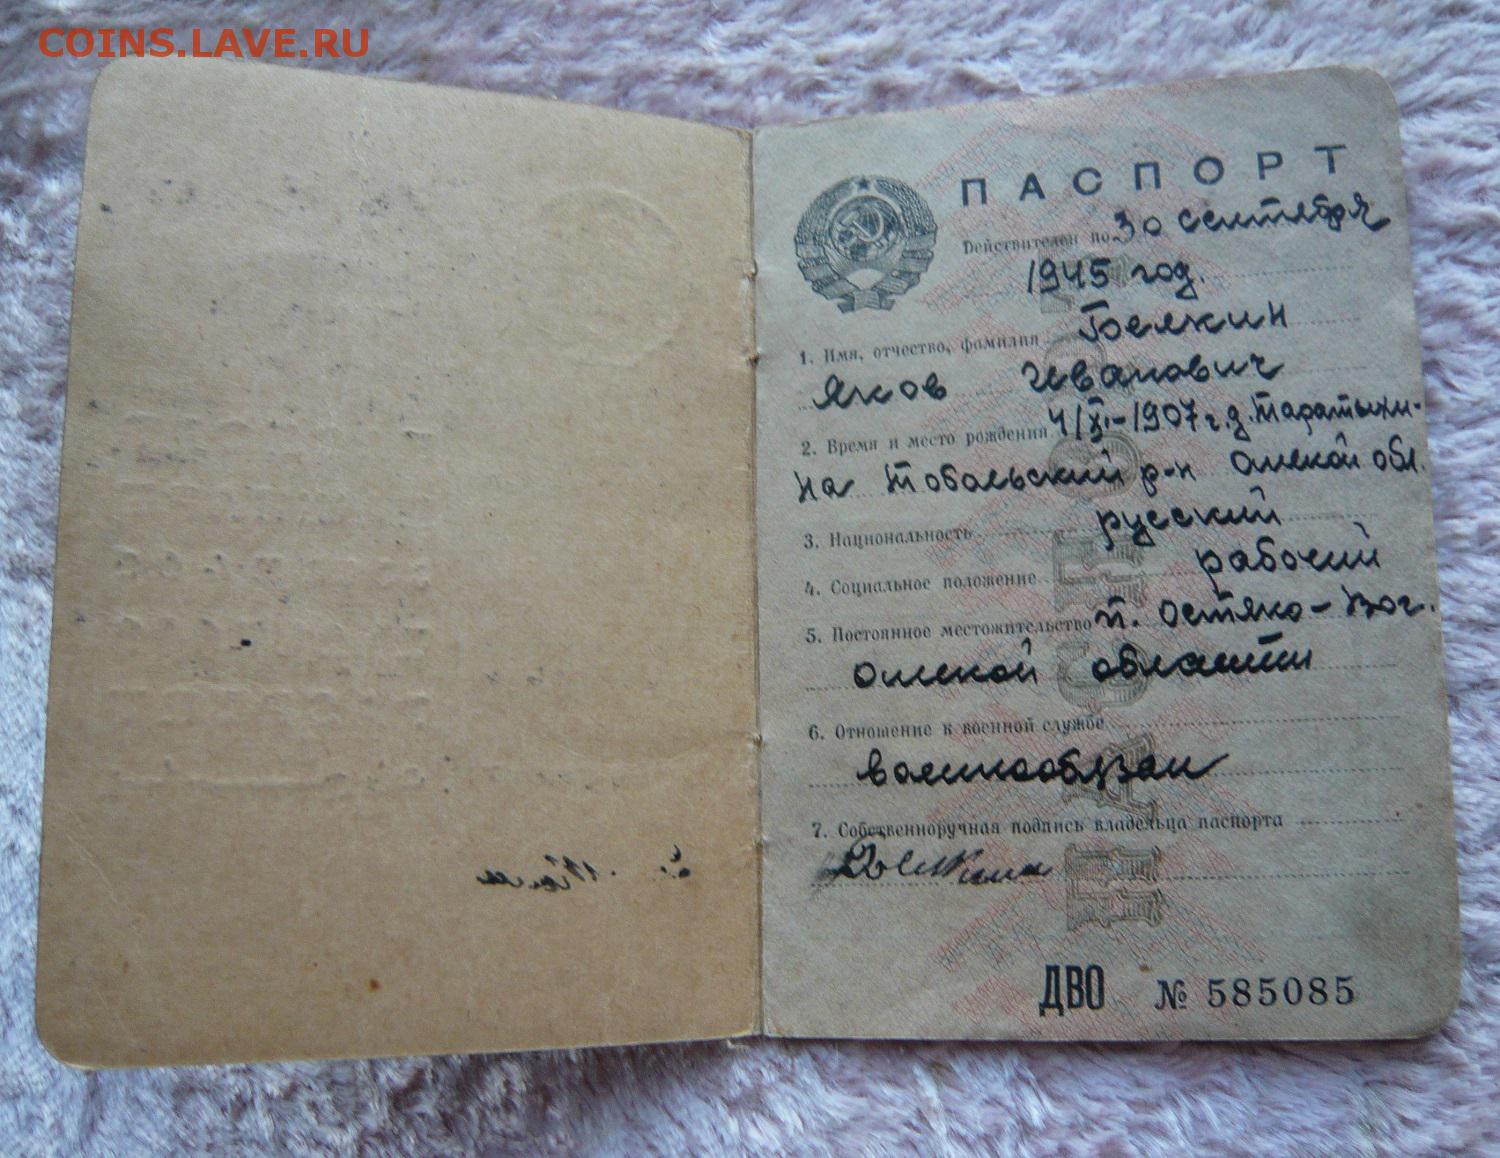 COINS.LAVE.RU
ПАСПОРТ
Действителен по 30 сентября
1945 год.
1. Имя, отчество, фамилия Белкин
Яков Иванович
2. Время и место рождения 4/XI-1907 г. д. Таратыхи-
на Тобольский р-н Омской обл.
3. Национальность русский
4. Социальное положение рабочий
5. Постоянное местожительство п. Остяко-Вог.
Омской области
6. Отношение к военной службе
военнообязан
7. Собственноручная подпись владельца паспорта
ДВО № 585085
ПАСПОРТ